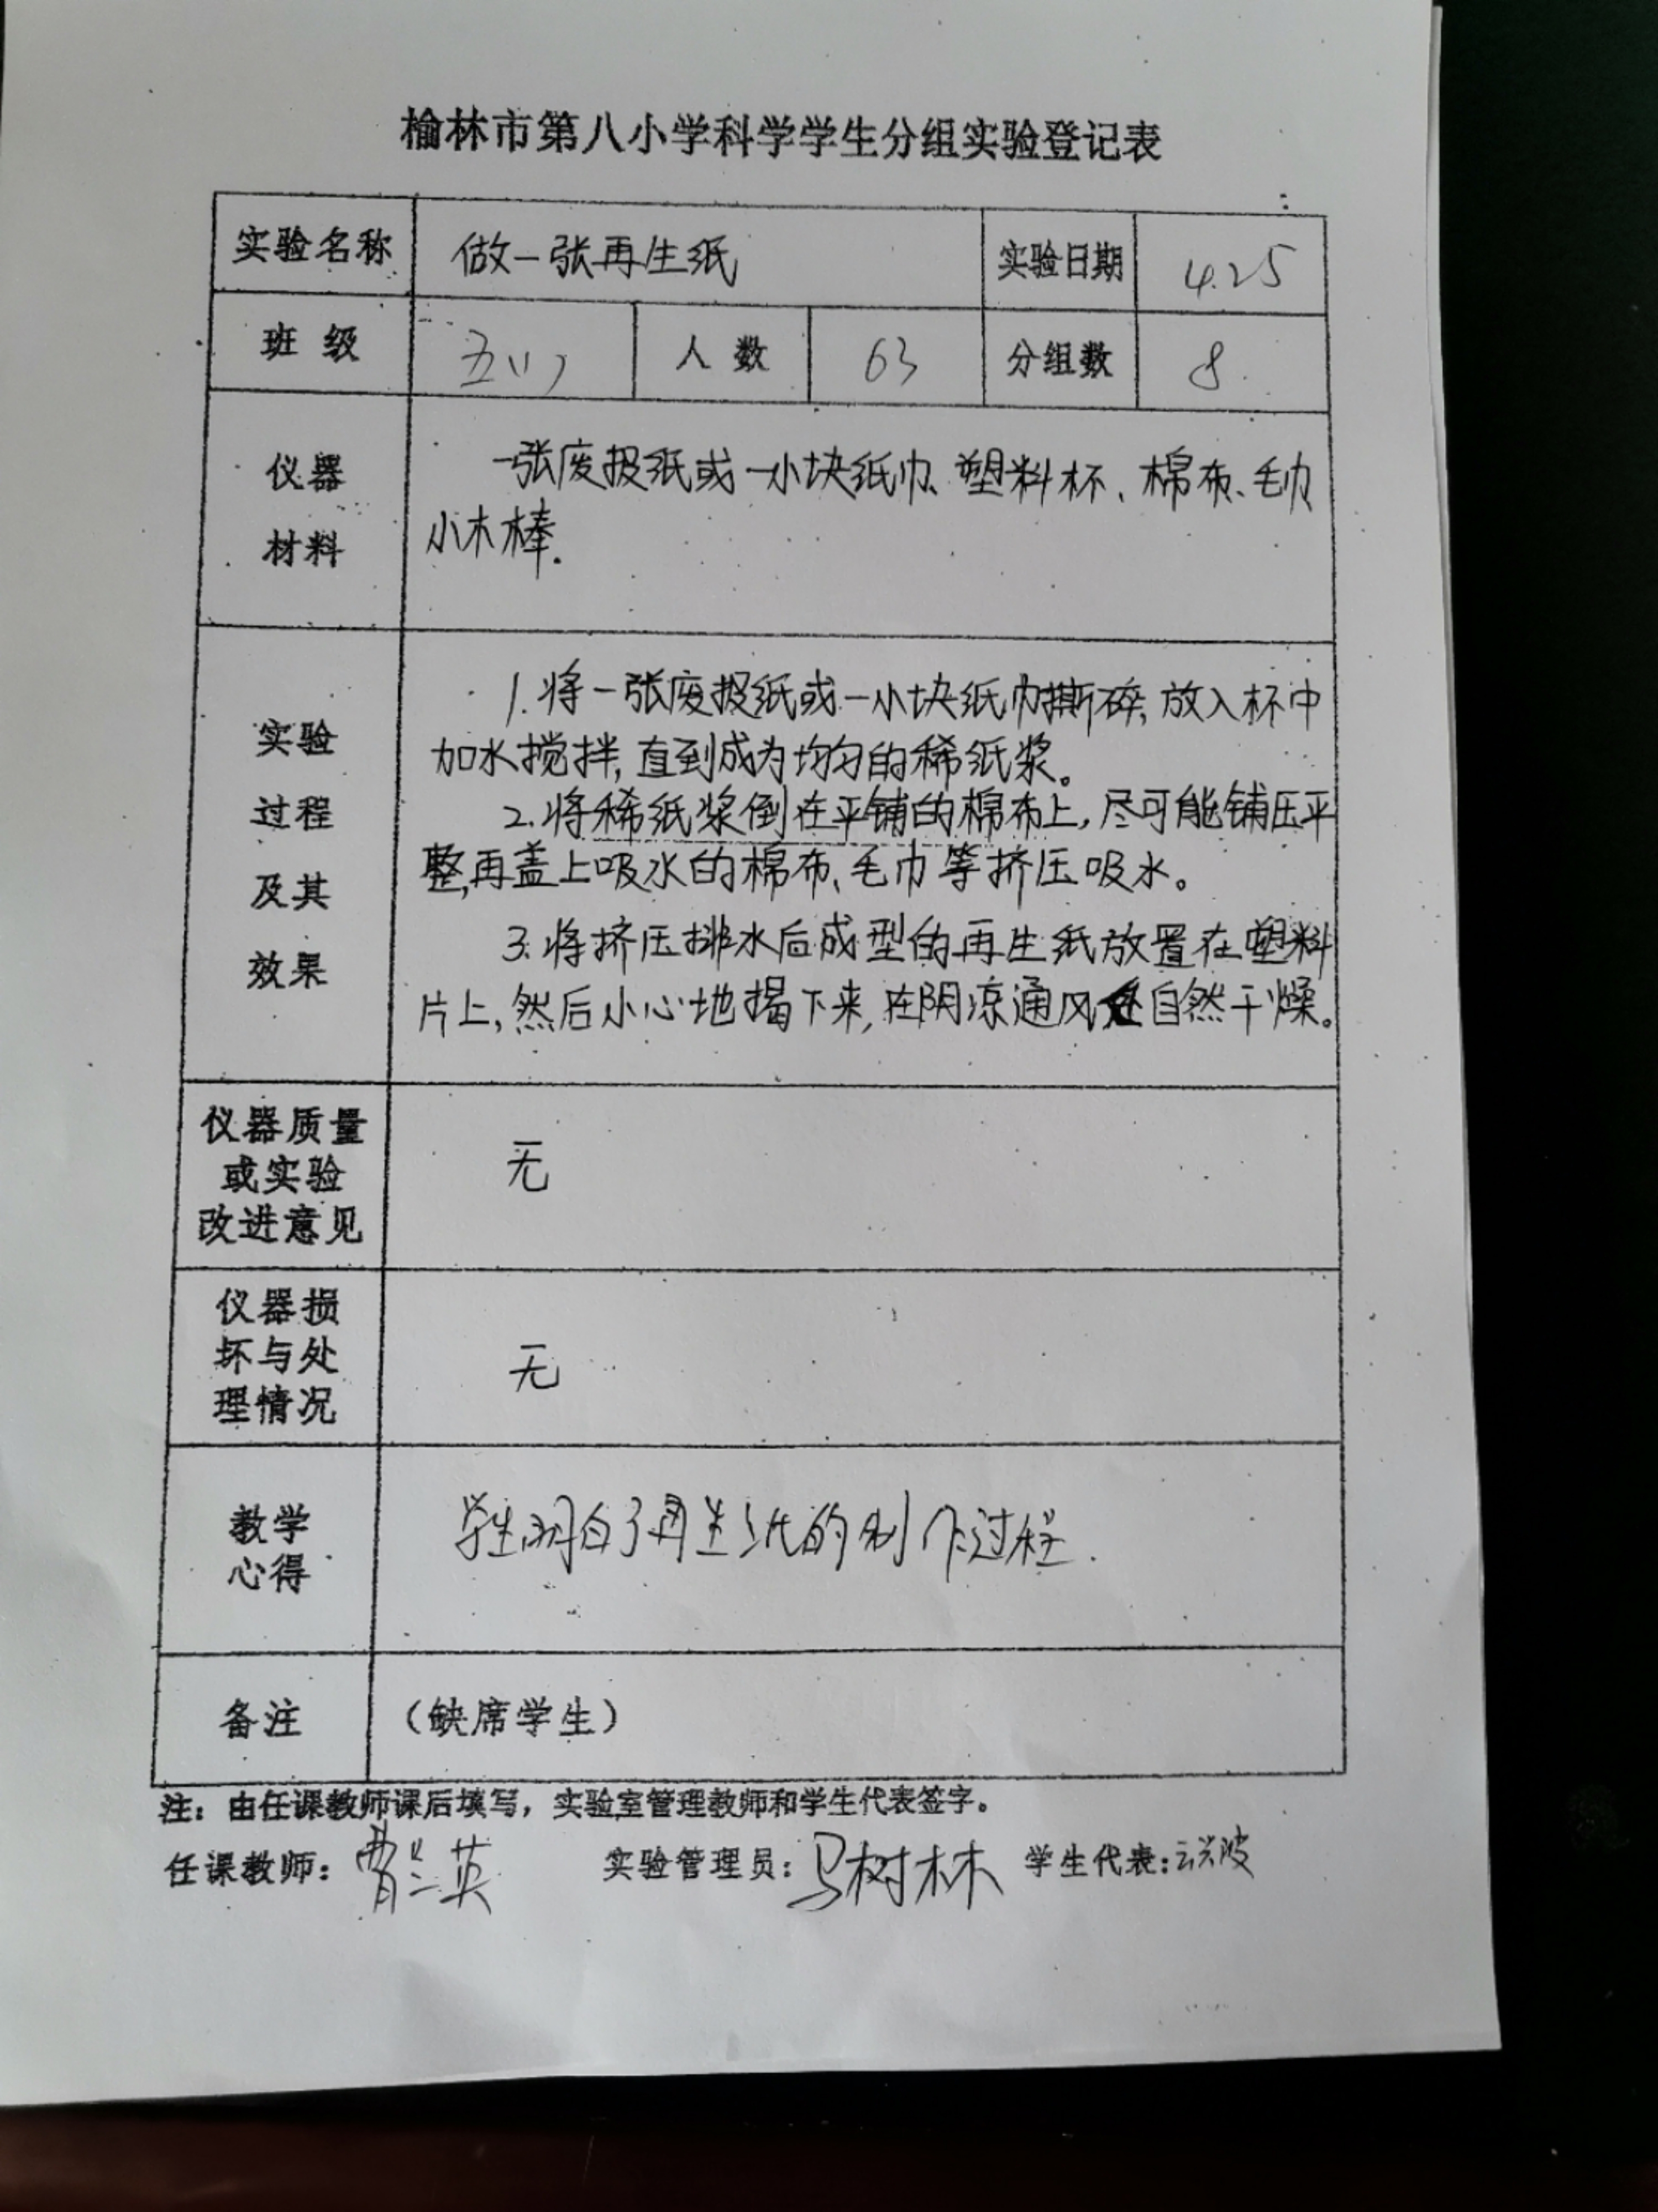 榆林市第八小学科学学生分组实验登记表
实验名称 做一张再生纸 实验日期 4.25
班级 五(1) 人数 63 分组数 8
仪器材料
一张废报纸或一小块纸巾、塑料杯、棉布、毛巾
小木棒.
实验过程及其效果
1.将一张废报纸或一小块纸巾撕碎,放入杯中
加水搅拌,直到成为均匀的稀纸浆。
2.将稀纸浆倒在平铺的棉布上,尽可能铺压平
整,再盖上吸水的棉布、毛巾等挤压吸水。
3.将挤压排水后成型的再生纸放置在塑料
片上,然后小心地揭下来,在阴凉通风处自然干燥。
仪器质量或实验改进意见 无
仪器损坏与处理情况 无
教学心得 学生明白了再生纸的制作过程.
备注 (缺席学生)
注：由任课教师课后填写，实验室管理教师和学生代表签字。
任课教师：曹兰英 实验管理员：马树林 学生代表：